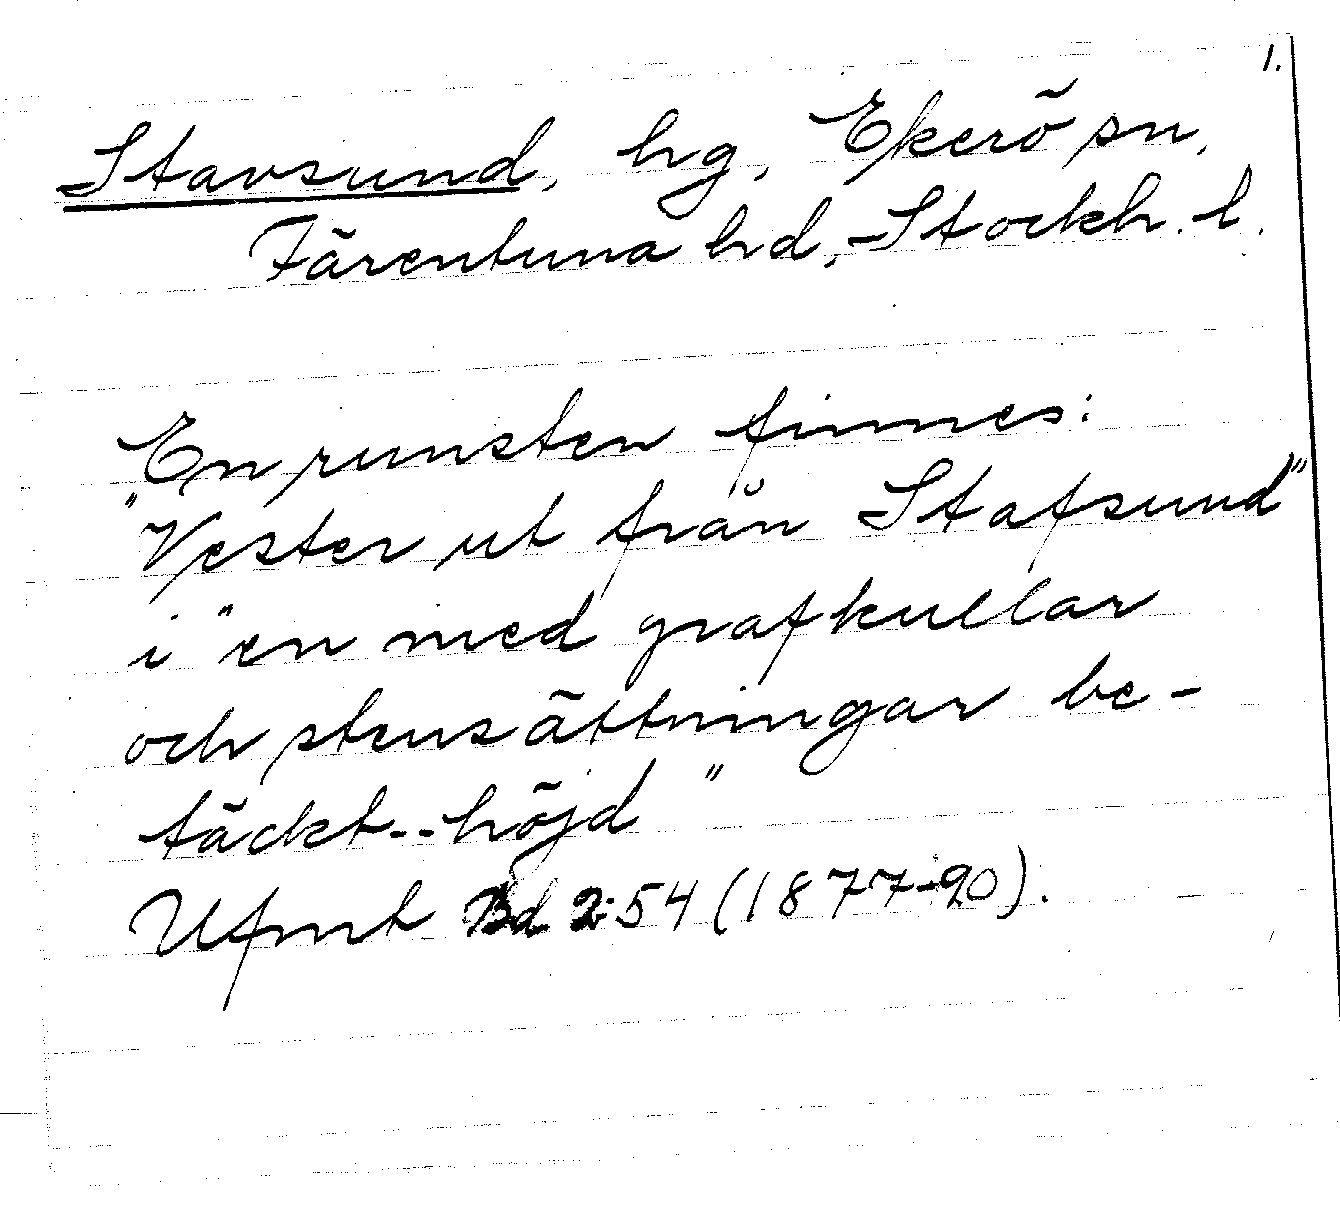 1.
Stavsund, hg, Ekerö sn,
Färentuna hd, Stockh. l.
En runsten finnes:
"Vester ut från Stafsund"
i "en med grafkullar
och stensättningar be-
täckt--höjd"
Ufmt Bd 2:54 (1877-90).